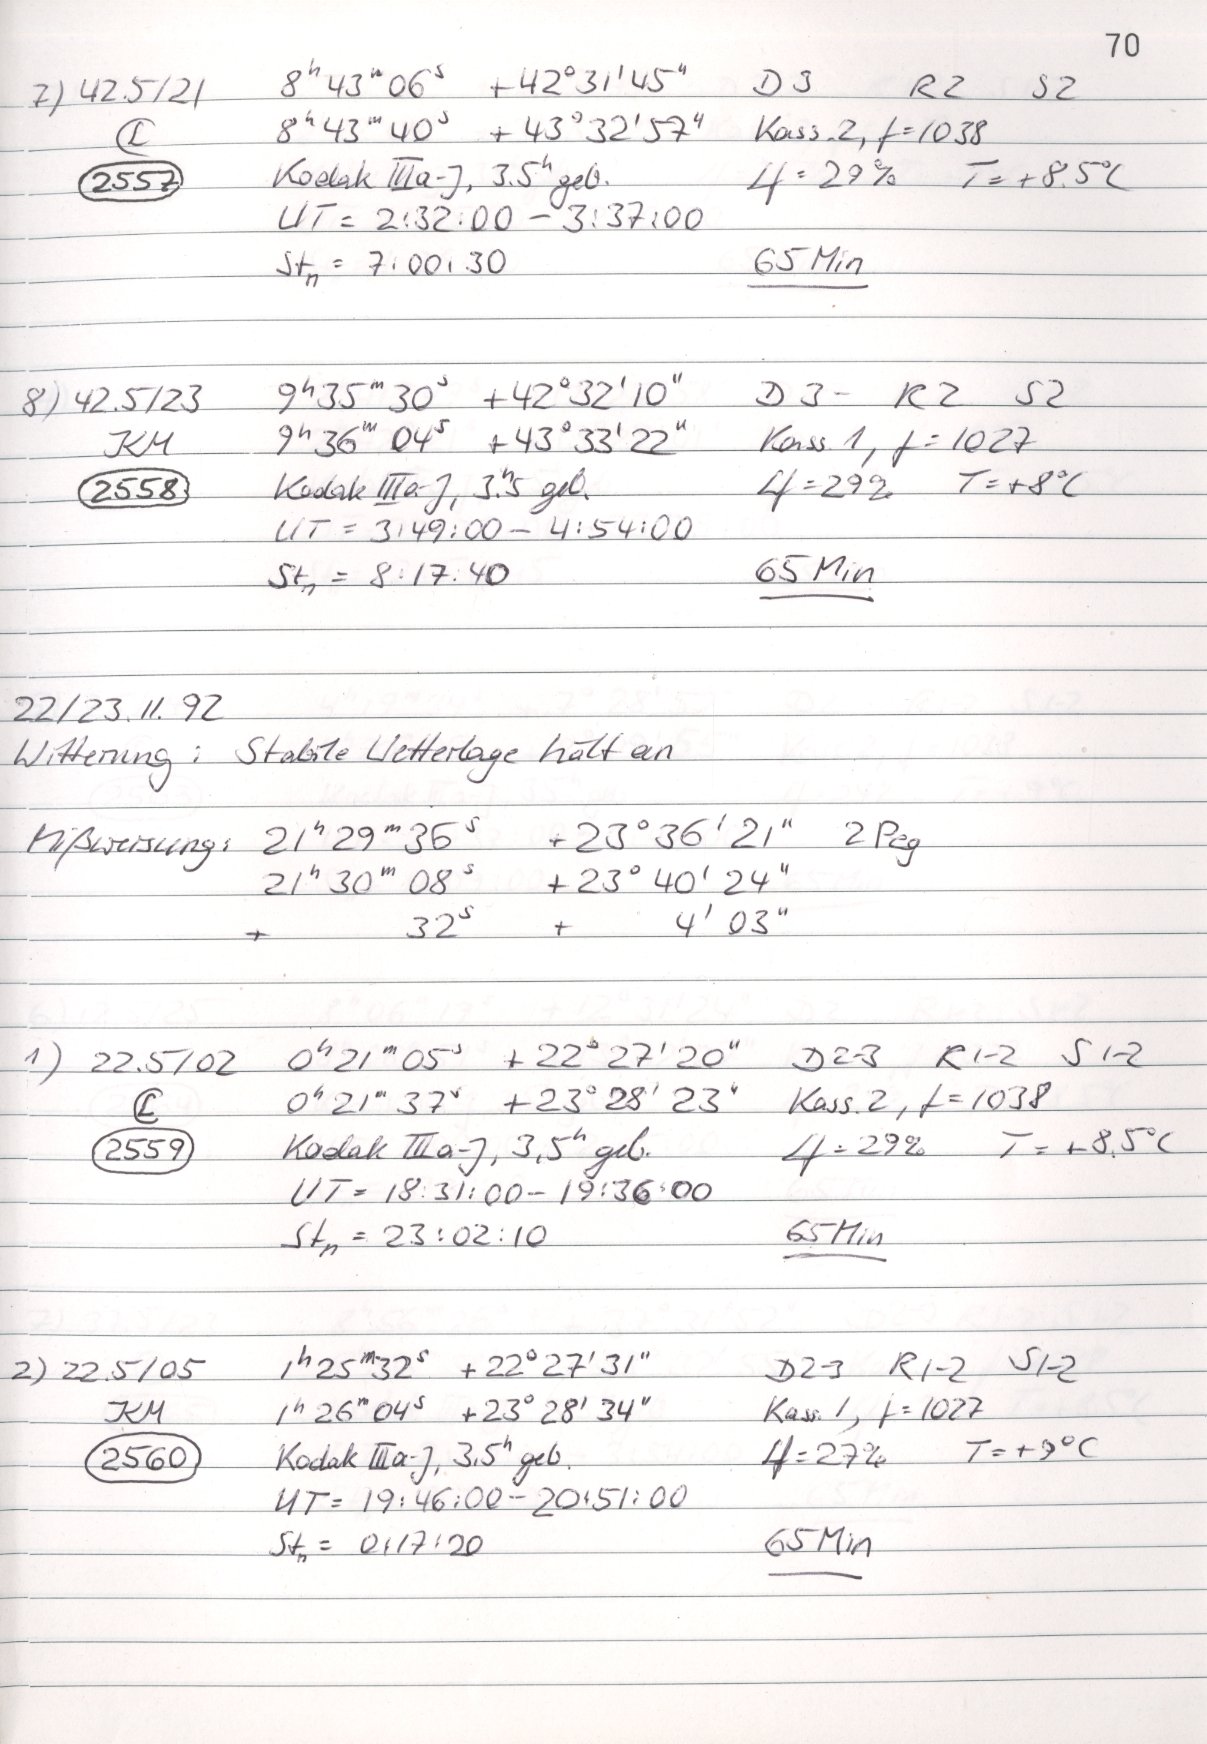 70
7) 42.5/21 8ʰ43ᵐ06ˢ +42°31'45" D3 R2 S2
8ʰ43ᵐ40ˢ +43°32'57" Kass. 2, f=1038
2557 Kodak IIIa-J, 3.5ʰ geb. = 29% T=+8.5°C
UT = 2:32:00 – 3:37:00
Stₙ = 7:00:30 65 Min
8) 42.5/23 9ʰ35ᵐ30ˢ +42°32'10" D3- R2 S2
KM 9ʰ36ᵐ04ˢ +43°33'22" Kass. 1, f=1027
2558 Kodak IIIa-J, 3.ʰ5 geb. =29% T=+8°C
UT = 3:49:00 – 4:54:00
Stₙ = 8:17:40 65 Min
22/23.11.92
Witterung: Stabile Wetterlage hält an
Mißweisung: 21ʰ29ᵐ36ˢ +23°36'21" 2 Peg
21ʰ30ᵐ08ˢ +23°40'24"
+ 32ˢ + 4'03"
1) 22.5/02 0ʰ21ᵐ05ˢ +22°27'20" D2-3 R1-2 S1-2
0ʰ21ᵐ37ˢ +23°28'23" Kass. 2, f=1038
2559 Kodak IIIa-J, 3,5ʰ geb. =29% T=+8.5°C
UT = 18:31:00 – 19:36:00
Stₙ = 23:02:10 65 Min
2) 22.5/05 1ʰ25ᵐ32ˢ +22°27'31" D2-3 R1-2 S1-2
KM 1ʰ26ᵐ04ˢ +23°28'34" Kass. 1, f=1027
2560 Kodak IIIa-J, 3.5ʰ geb. =27% T=+9°C
UT = 19:46:00 – 20:51:00
Stₙ = 0:17:20 65 Min